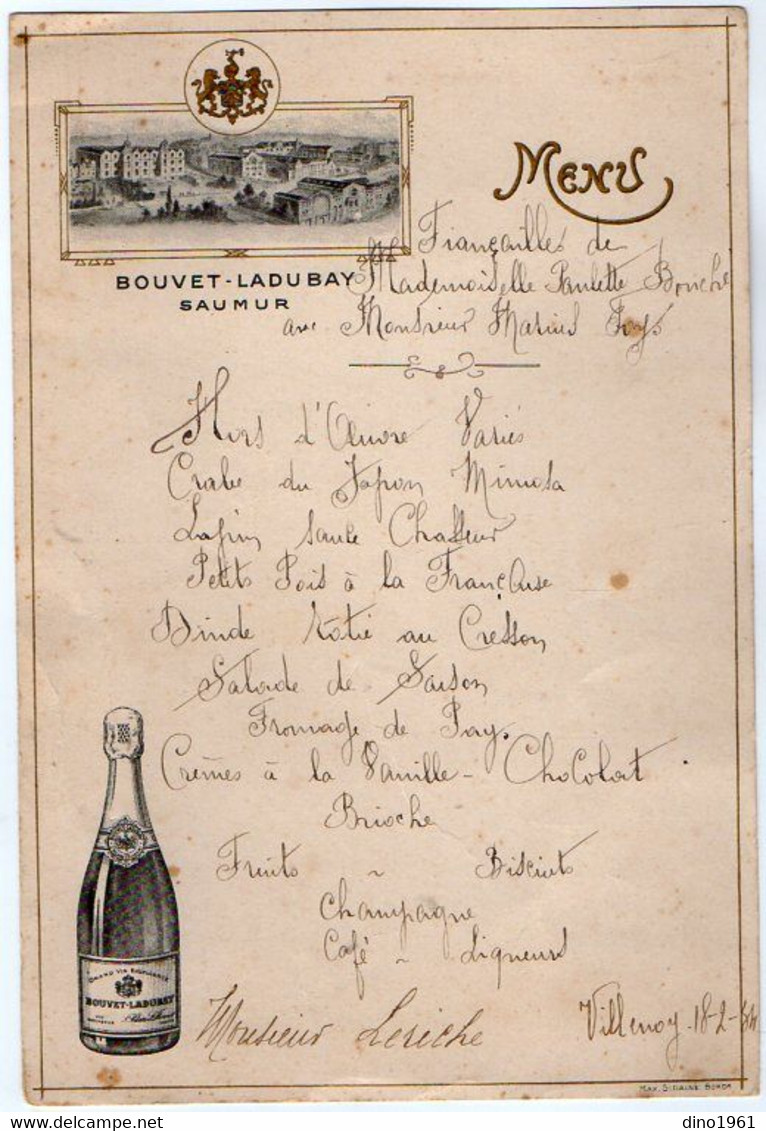 MENU
BOUVET-LADUBAY
SAUMUR
Fiançailles de
Mademoiselle Paulette
avec Monsieur Marius
Hors d'Œuvre Variés
Crabe du Japon Mimosa
Lapin sauté Chasseur
Petits Pois à la Françaîse
Dinde rôtie au Cresson
Salade de Saison
Fromage de Pays
Crèmes à la Vanille - Chocolat
Brioche
Fruits ~ Biscuits
Champagne
Café ~ Liqueurs
GRAND VIN
BOUVET-LADUBAY
Monsieur Leriche
Villenoy 18-2-
dino1961